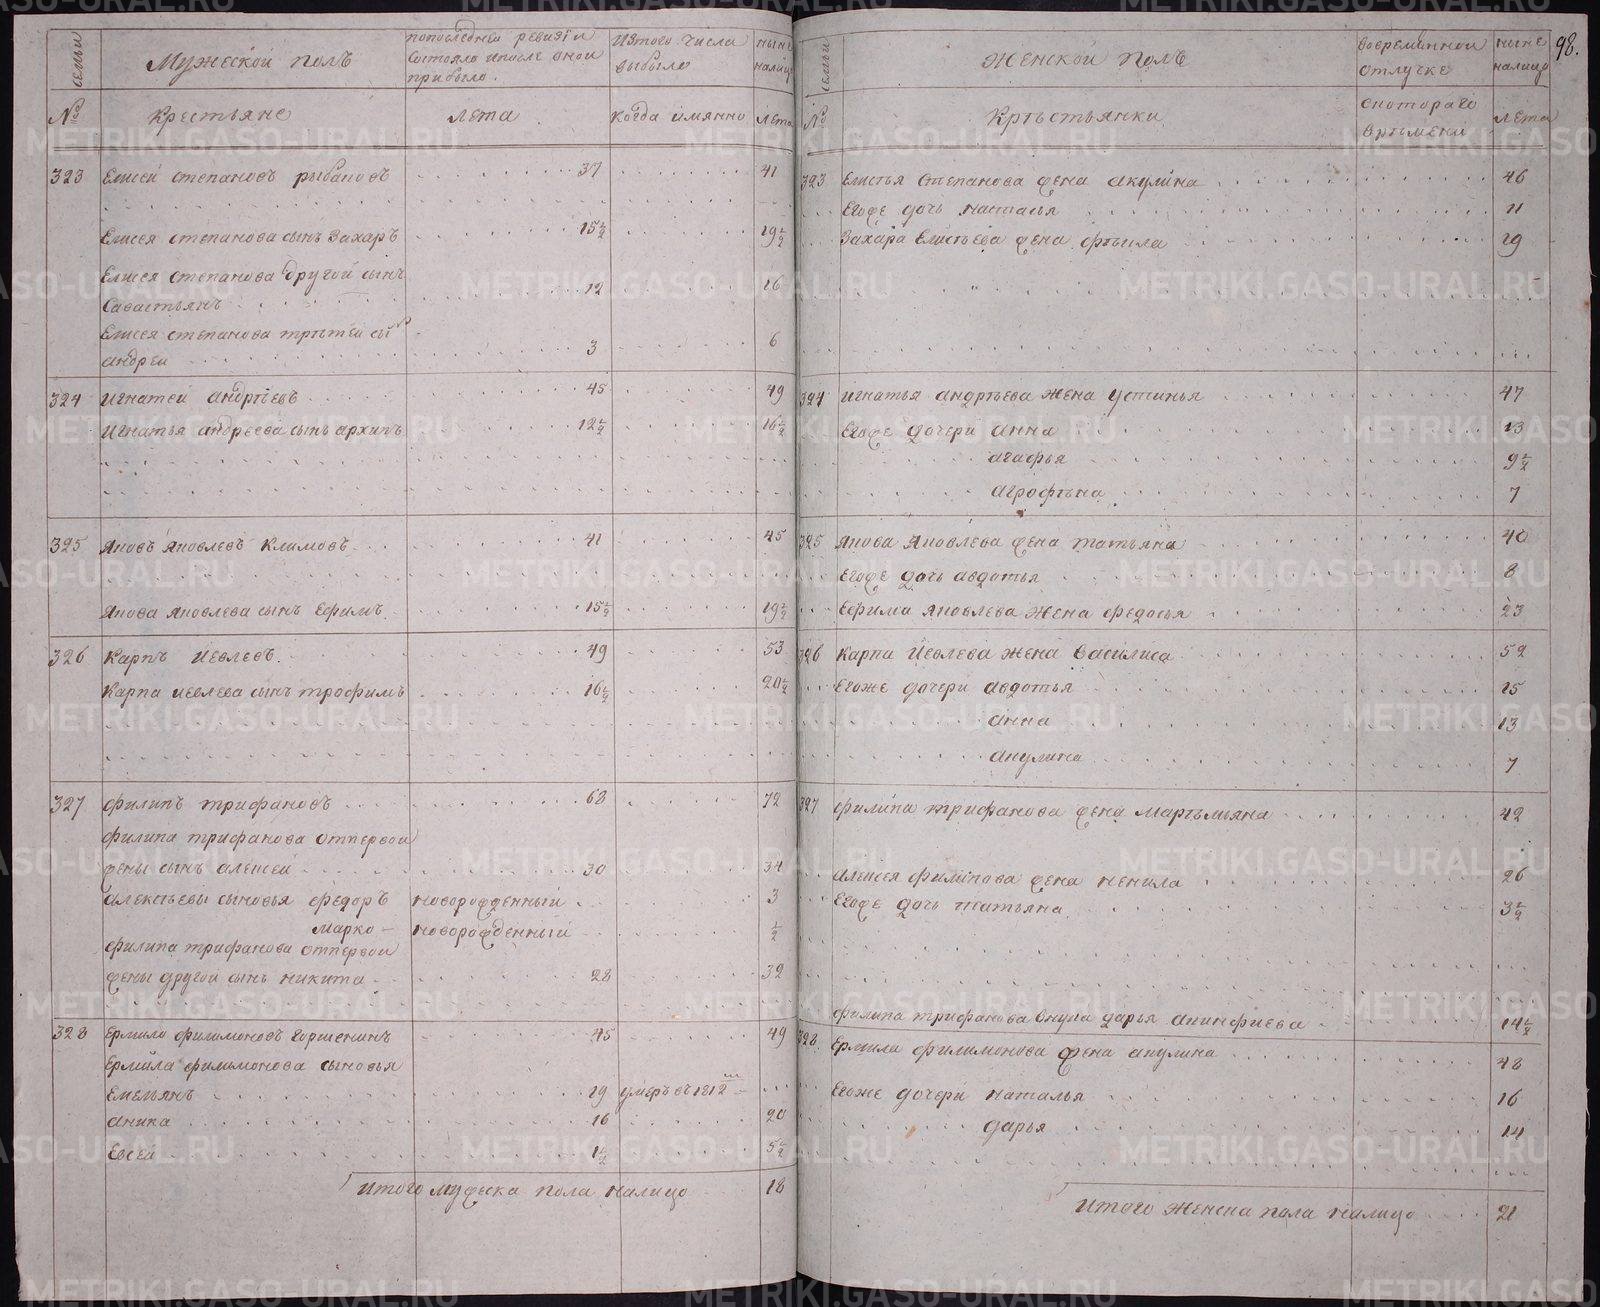 семьи
Мужескои полъ
попоследнеи ревизiи
состояло ипосле онои
прибыло.
Изтого числа
выбыло
ныне
налицо
№
Крестьяне
лета
когда имянно
лета
323 Елисеи степановъ рыбаковъ 37 41
Елисея степанова сынъ Захаръ 15½ 19½
Елисея степанова другои сынъ
Савастьянъ 12 16
Елисея степанова третеи сынъ
андреи 3 6
324 Игнатеи андрѣевъ 45 49
Игнатья андреева сынъ архипъ 12½ 16½
325 Яковъ Яковлевъ Климовъ 41 45
Якова Яковлева сынъ Ефимъ 15½ 19½
326 Карпъ Иевлевъ 49 53
Карпа иевлева сынъ трофимъ 16½ 20½
327 филипъ трифановъ 68 72
филипа трифанова отпервои
жены сынъ алексеи 30 34
алексѣевы сыновья федоръ новорожденныи 3
марко новорожденныи ½
филипа трифанова отпервои
жены другои сынъ никита 28 32
328 Ермило филимоновъ Горшенинъ 45 49
Ермила филимонова сыновья
Емельянъ 19 умеръ въ 1812
аника 16 20
Евсеи 1½ 5½
Итого мужеска пола налицо 18
семьи
Женскои полъ
вовременнои
отлучке
ныне
налицо
98.
№
Крѣстьянки
скотораго
врѣмени
лета
323 Елисѣя Степанова жена акулина 46
Егоже дочь настасья 11
Захара Елисѣева жена 19
324 игнатья андрѣева жена устинья 47
Егоже дочери анна 13
агафья 9½
агрофѣна 7
325 Якова Яковлева жена татьяна 40
Егоже дочь авдотья 8
Ефима Яковлева жена федосья 23
326 Карпа Иевлева жена василиса 52
Егоже дочери авдотья 15
анна 13
акулина 7
327 филипа трифанова жена мартьмьяна 42
алексея филипова жена ненила 26
Егоже дочь татьяна 3½
филипа трифанова внука дарья акинфиева 14½
328 Ермила филимонова жена акулина 48
Егоже дочери наталья 16
дарья 14
Итого женска пола налицо 21
METRIKI.GASO-URAL.RU